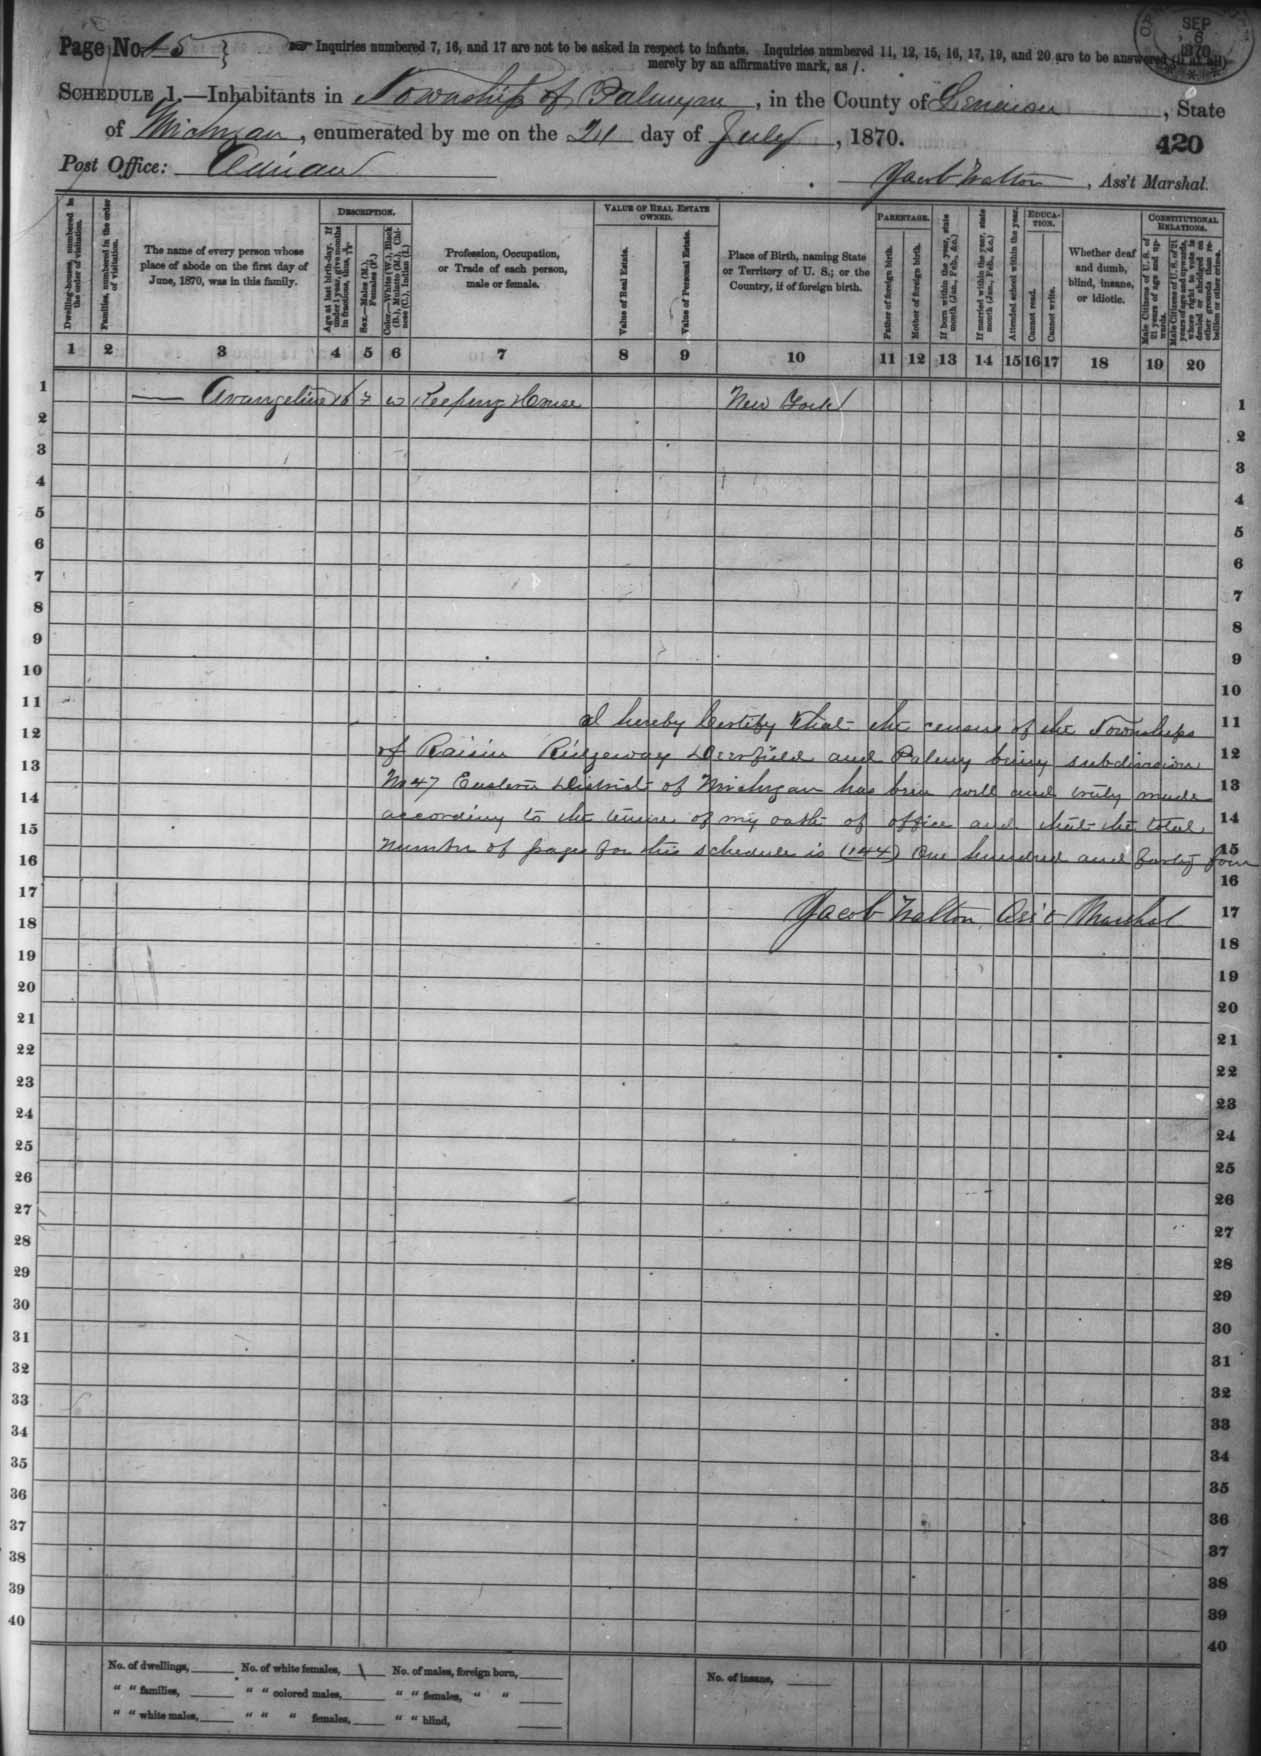 Page No. 45
☞ Inquiries numbered 7, 16, and 17 are not to be asked in respect to infants. Inquiries numbered 11, 12, 15, 16, 17, 19, and 20 are to be answered (if at all)
merely by an affirmative mark, as /.
SEP
6
1870
SCHEDULE 1.—Inhabitants in Township of Palmyra, in the County of Lenawee, State
of Michigan, enumerated by me on the 21 day of July, 1870.
420
Post Office: Adrian
Jacob Walton, Ass't Marshal.
Dwelling-houses, numbered in the order of visitation.
Families, numbered in the order of visitation.
The name of every person whose place of abode on the first day of June, 1870, was in this family.
DESCRIPTION.
Age at last birth-day. If under 1 year, give months in fractions, thus,
Sex.—Males (M.), Females (F.)
Color.—White (W.), Black (B.), Mulatto (M.), Chinese (C.), Indian (I.)
Profession, Occupation, or Trade of each person, male or female.
VALUE OF REAL ESTATE OWNED.
Value of Real Estate.
Value of Personal Estate.
Place of Birth, naming State or Territory of U. S.; or the Country, if of foreign birth.
PARENTAGE.
Father of foreign birth.
Mother of foreign birth.
If born within the year, state month (Jan., Feb., &c.)
If married within the year, state month (Jan., Feb., &c.)
Attended school within the year.
EDUCATION.
Cannot read.
Cannot write.
Whether deaf and dumb, blind, insane, or idiotic.
CONSTITUTIONAL RELATIONS.
Male Citizens of U. S. of 21 years of age and upwards.
Male Citizens of U. S. of 21 years of age and upwards, whose right to vote is denied or abridged on other grounds than rebellion or other crime.
1 2 3 4 5 6 7 8 9 10 11 12 13 14 15 16 17 18 19 20
1 — Avangeline 16 F W Keeping House New York 1
2 2
3 3
4 4
5 5
6 6
7 7
8 8
9 9
10 10
11 I hereby Certify that the census of the Townships 11
12 of Raisin Ridgeway Deerfield and Palmy being subdivision 12
13 No 47 Eastern District of Michigan has been well and truly made 13
14 according to the tenure of my oath of office and that the total 14
15 number of pages for this schedule is (144) One hundred and forty four 15
16 16
17 Jacob Walton, Ass't Marshal 17
18 18
19 19
20 20
21 21
22 22
23 23
24 24
25 25
26 26
27 27
28 28
29 29
30 30
31 31
32 32
33 33
34 34
35 35
36 36
37 37
38 38
39 39
40 40
No. of dwellings, No. of white females, 1 No. of males, foreign born, No. of insane,
" " families, " " colored males, " " females, " "
" " white males, " " " females, " " blind,